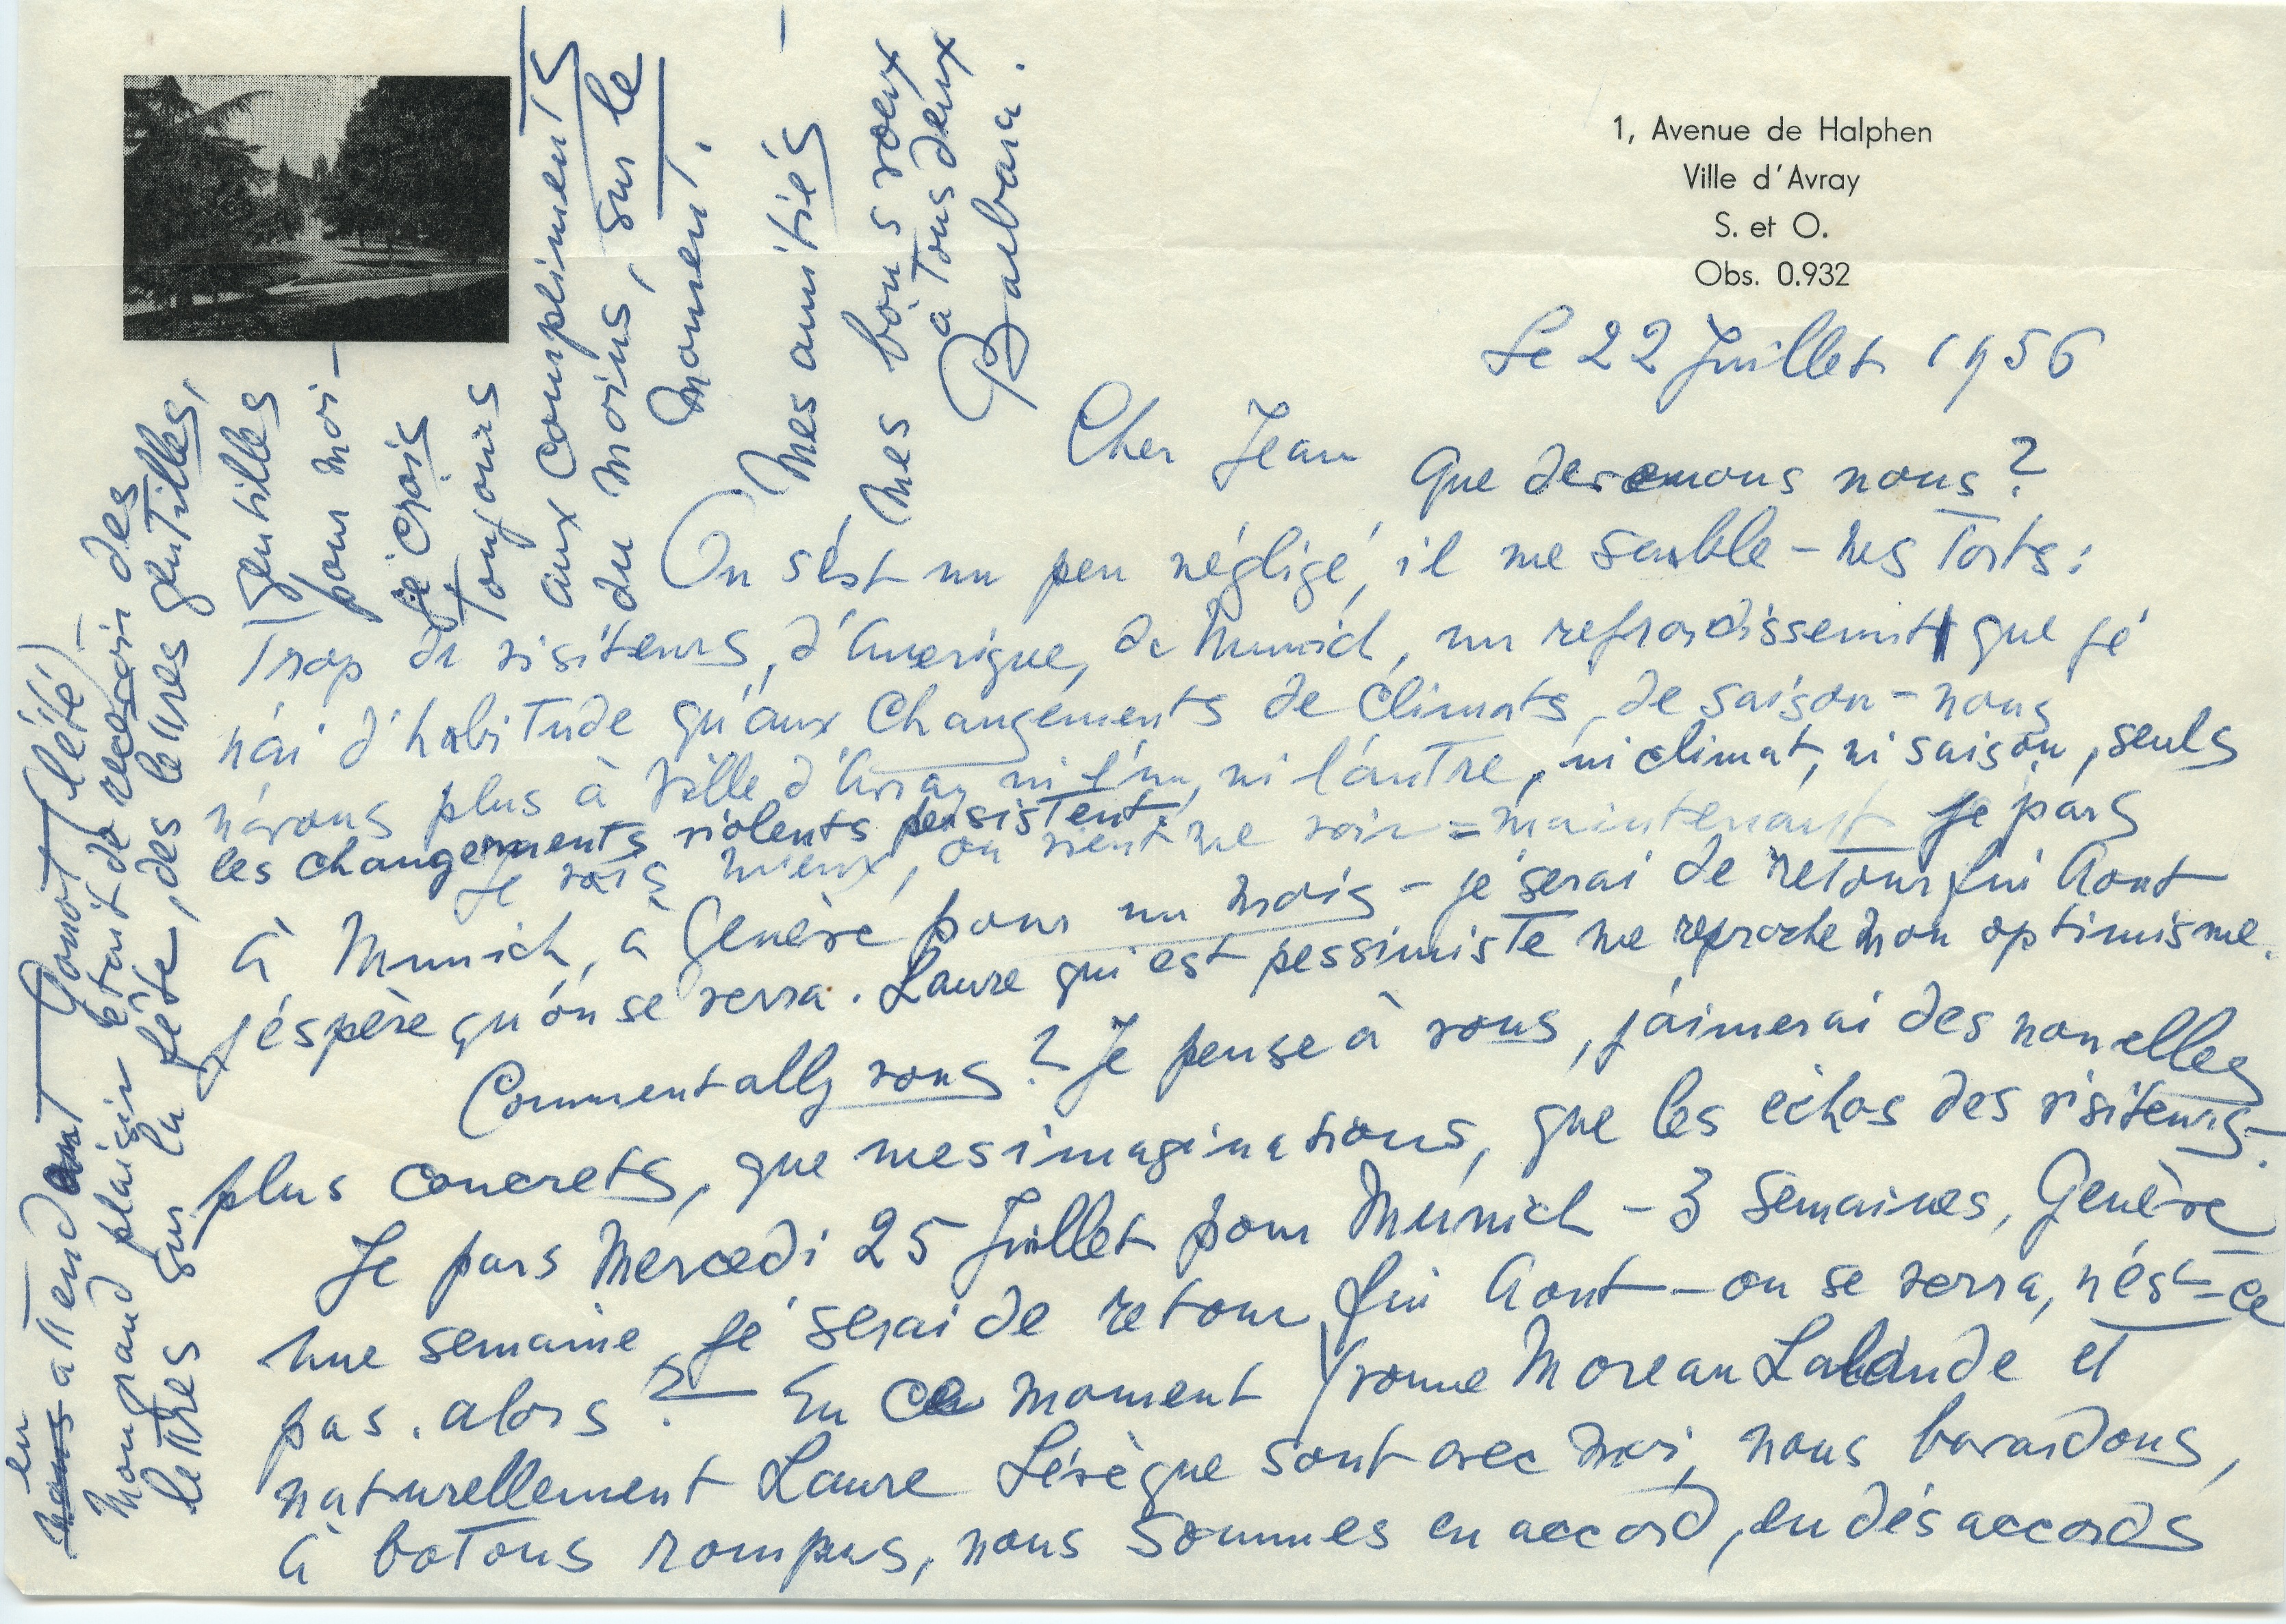 1, Avenue de Halphen
Ville d'Avray
S. et O.
Obs. 0.932
Le 22 Juillet 1956
Cher Jean
Que devenons nous?
On s'ést un peu négligé, il me semble - mes Torts:
Trop de visiteurs, d'Amerique, de Munich, un refroidissement que jé
n'ái d'habitude qu'aux changements de climats, de saison - nous
n'avons plus à Ville d'Avray ni l'un, ni l'autre, ni climat, ni saison, seuls
les changements violents persistent.
Je vais mieux, on vient me voir = maintenant je pars
à Munich, à Genève pour un mois - je serai de retour fin Aout
j'éspère qu'on se verra. Laure qui est pessimiste me reproche mon optimisme.
Comment allez vous? Je pense à vous, j'aimerai des nouvelles
plus concrets, que mes imaginations, que les échos des visiteurs -
Je pars Mercredi 25 Juillet pour Munich - 3 semaines, Genève
une semaine, je serai de retour fin Aout - on se verra, n'ést-ce
pas. alors? - En ce moment Yvonne Moreau Lalande et
naturellement Laure Lévèque sont avec moi, nous bavardons,
à batons rompus, nous sommes en accord, en désaccords
en attendant Gonot (l'été) -
Mon grand plaisir étant de recevoir des
lettres sur la fête, des lettres gentilles,
gentilles
pour moi -
je crois
toujours
aux compliments
du moins, sur le
moment.
Mes amitiés -
Mes bons voeux
à Tous deux
Barbara.